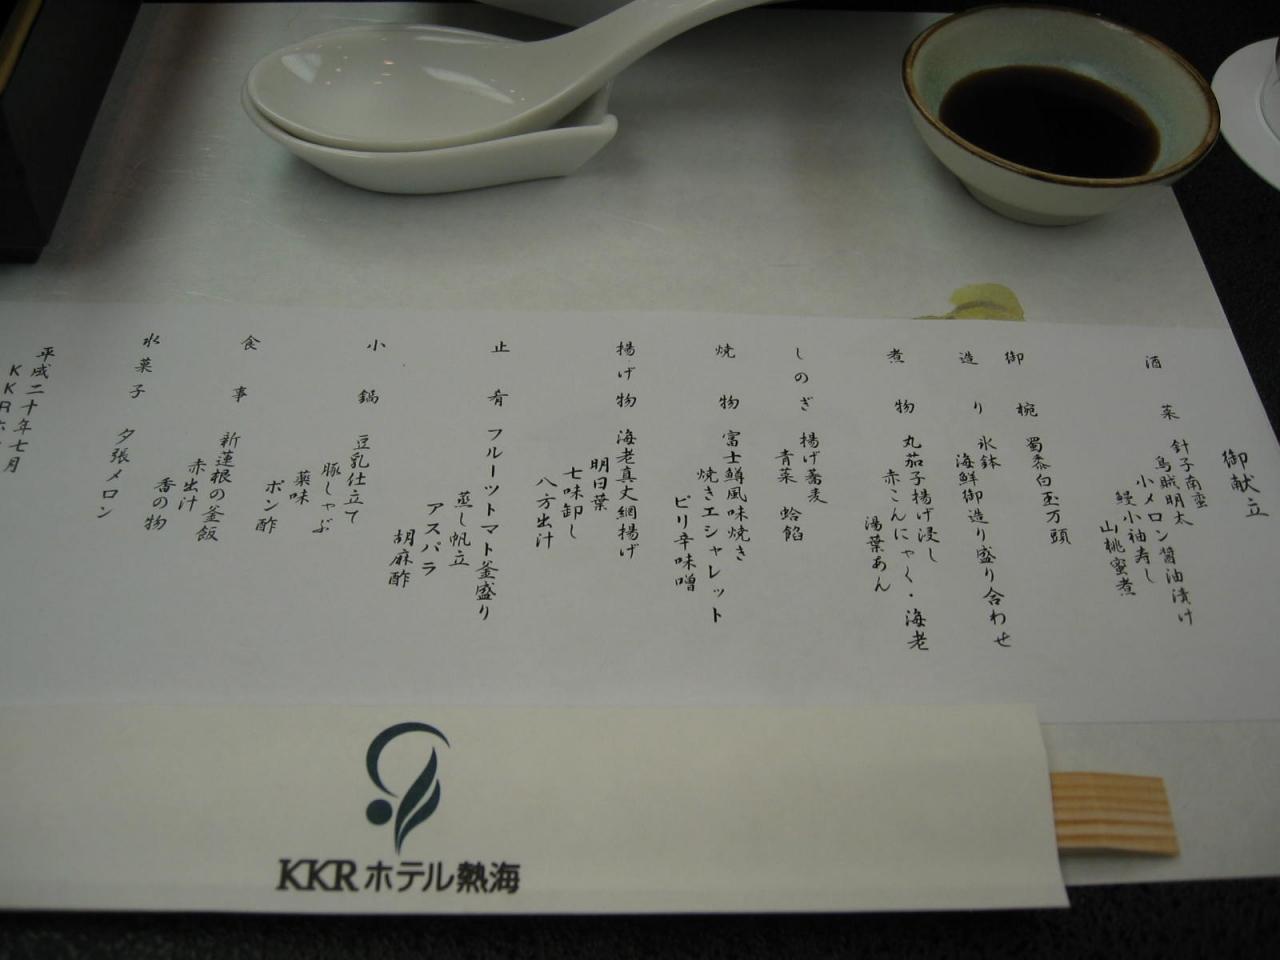 御献立
酒菜 針子南蛮
烏賊明太
小メロン醤油漬け
鰻小袖寿し
山桃蜜煮
御椀 蜀黍白玉万頭
造り 氷鉢
海鮮御造り盛り合わせ
煮物 丸茄子揚げ浸し
赤こんにゃく・海老
湯葉あん
しのぎ 揚げ蕎麦
青菜 蛤餡
焼物 富士鱒風味焼き
焼きエシャレット
ピリ辛味噌
揚げ物 海老真丈網揚げ
明日葉
七味卸し
八方出汁
止肴 フルーツトマト釜盛り
蒸し帆立
アスパラ
胡麻酢
小鍋 豆乳仕立て
豚しゃぶ
薬味
ポン酢
食事 新蓮根の釜飯
赤出汁
香の物
水菓子 夕張メロン
平成二十年七月
KKR
KKRホテル熱海